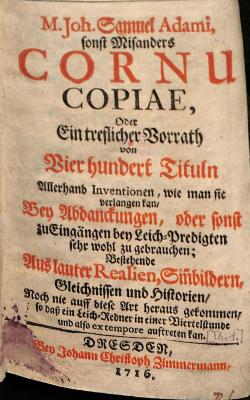 M. Joh. Samuel Adami,
sonst Misanders
CORNU
COPIAE,
Oder
Ein treflicher Vorrath
von
Vier hundert Tituln
Allerhand Inventionen, wie man sie
verlangen kan/
Bey Abdanckungen, oder sonst
zu Eingängen bey Leich-Predigten
sehr wohl zu gebrauchen;
Bestehende
Aus lauter Realien, Siñbildern,
Gleichnissen und Historien/
Noch nie auff diese Art heraus gekommen/
so daß ein Leich-Redner in einer Viertelstunde
und also ex tempore auftreten kan.
DRESDEN,
Bey Johann Christoph Zimmermann,
1716.